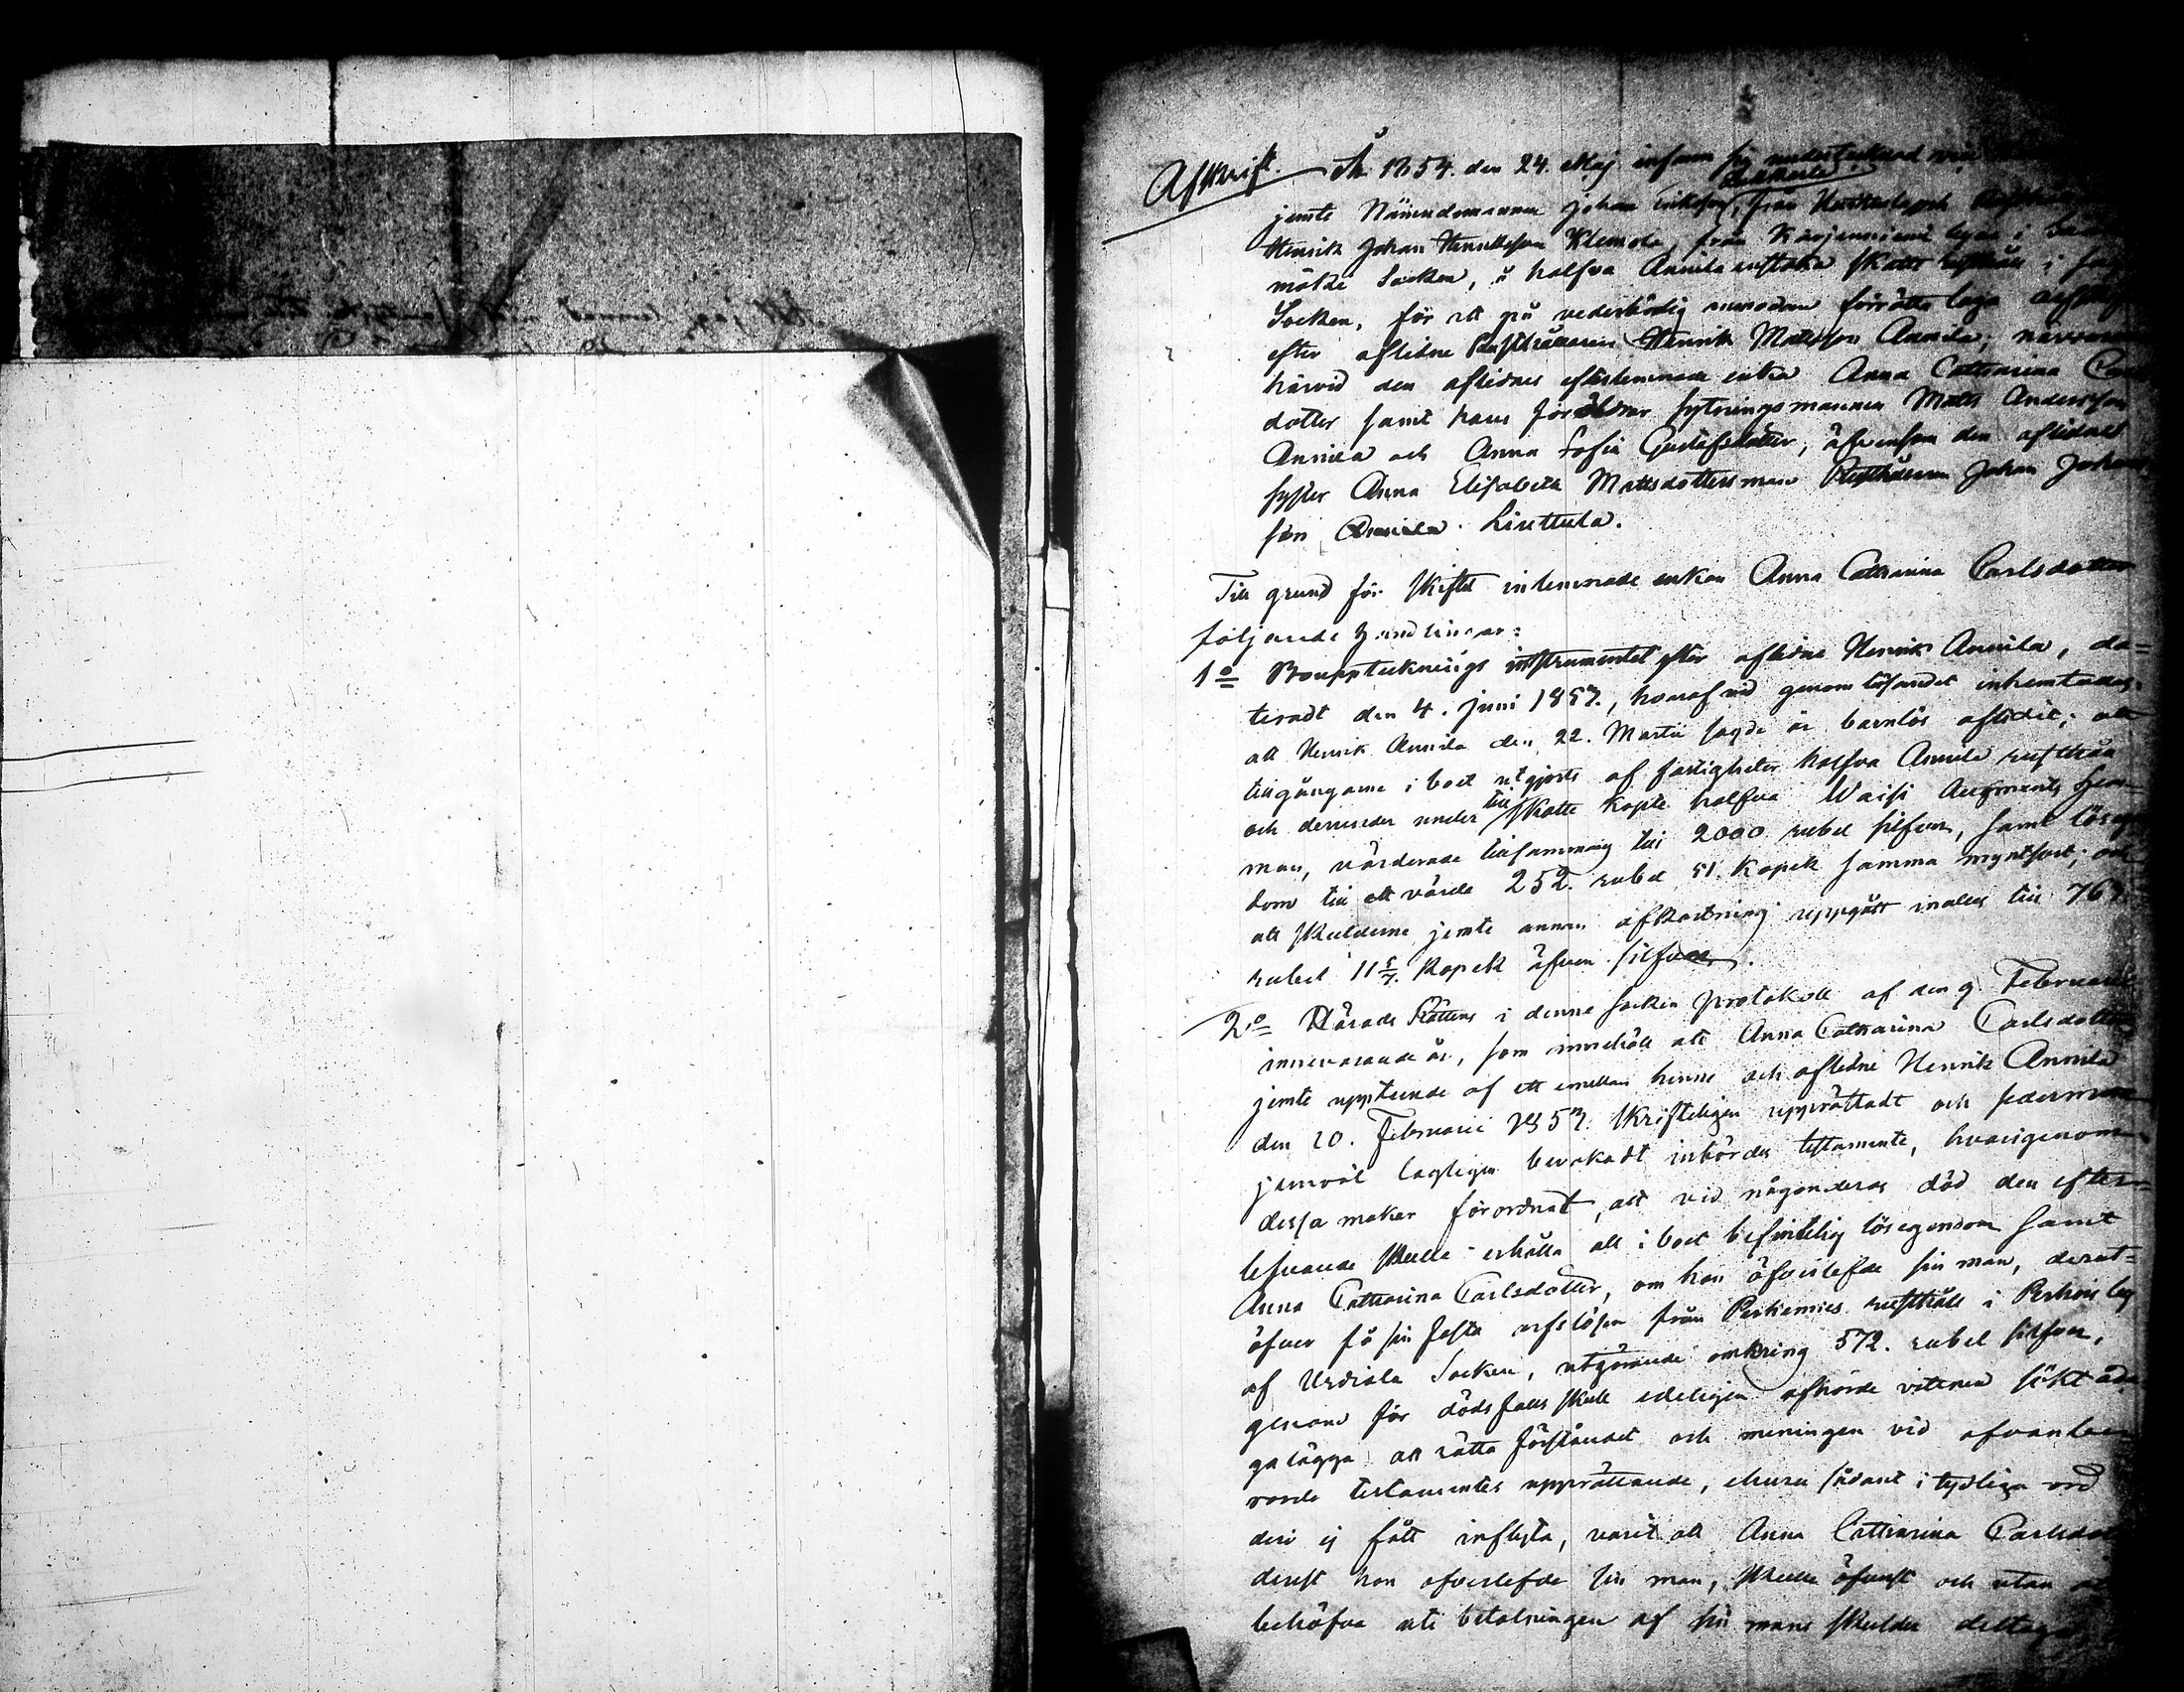 Afskrift. År 1854. den 24. Maj infann sig undertecknad
jemte Nämndemannen Johan Eriksson, från
Henrik Johan Henriksson Klemola, från Karjenniemi by i
mäki Socken, å halfva Annila
Socken, för att på vederbörlig anmodan förrätta laga arfskifte
efter aflidne Rusthållaren Henrik Mattsson Annila; närvarande
härvid den aflidnes efterlemnade enka Anna Catharina Carls
dotter samt hans föräldrar sytningsmannen Matts Andersson
Annila och Anna Sofia Gustafsdotter, äfvensom den aflidnes
syster Anna Elisabeta Mattsdotters man Rusthållaren Johan Johans
son Annila Liuttula.
Till grund för skiftet inlemnade enkan Anna Catharina Carlsdotter
följande handlingar:
1o Bouppteknings instrumentet efter aflidne Henrik Annila, da=
teradt den 4. Juni 1857., hvaraf vid genomläsandet inhemtades:
att Henrik Annila den 22. Martii sagde år barnlös aflidit; att
tillgångarne i boet utgjorts af fastigheter halfva Annila rusthåll
och derunder under till skatte köpte halfva Waisi Augments hem=
man, värderade tillsammans till 2000 rubel silfver, samt lösegen
dom till ett värde 252. rubel 51. kopek samma myntsort; och
att skulderne jemte annan afkortning uppgått inalles till 767.
rubel 11 5/7. kopek äfven silfver.
2.o Härads Rättens i denne socken protokoll af den 9. Februarii
innevarande år, som innehåll att Anna Catharina Carlsdotter
jemte uppteende af ett emellan henne och aflidne Henrik Annila
den 10. Februarii 1857. skrifteligen upprättadt och sedermera
jemväl lagligen bevakadt inbördes testamente, hvarigenom
dessa makar förordnat, att vid någonderas död den efter=
lefvande skulle erhålla all i boet befintelig lösegendom samt
Anna Catharina Carlsdotter, om hon öfverlefde sin man, derut=
öfver få sin arfslösen från rusthåll i by
af Urdiala Socken, utgörande omkring 572. rubel silfver,
genom för dödsfalls skull edeligen afhörde vittnen sökt åda
galägga att rätta förståndet och meningen vid ofvanbe
rörde testamentes upprättande, ehuru sådant i tydliga ord
deri ej fått inflyta, varit att Anna Catharina Carlsdot
derest hon öfverlefde sin man, skulle äfvenst och utan att
behöfva uti betalningen af sin mans skulder deltaga